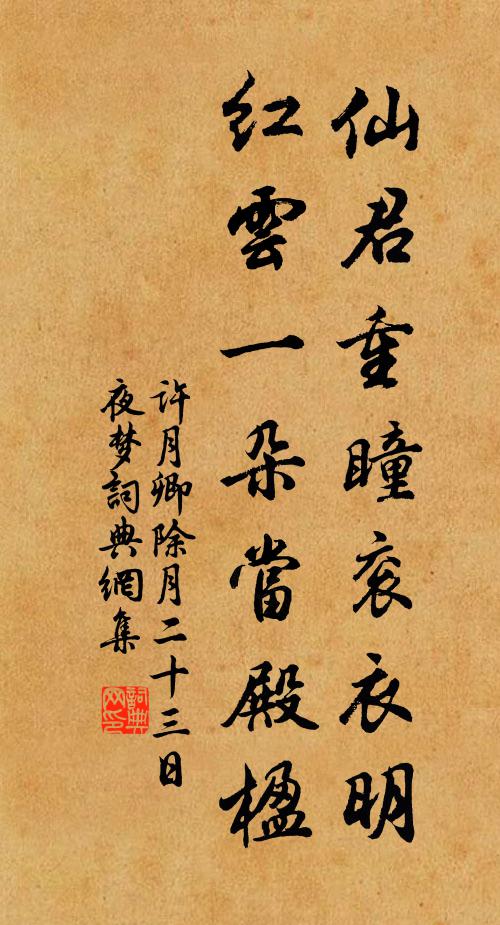 仙君重瞳衮衣明
红雲一朵當殿楹
許月卿除月二十三日
夜梦詞典網集
詞典网印